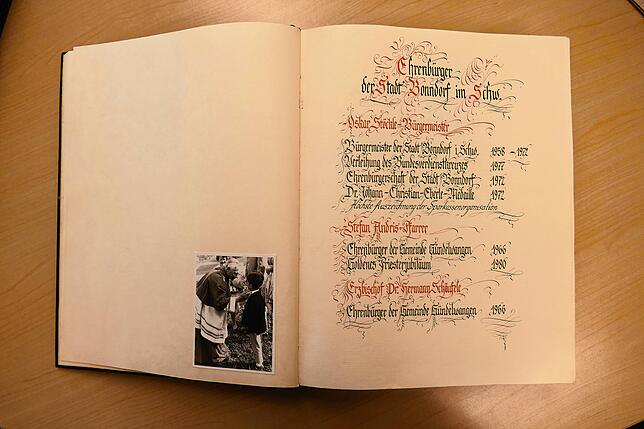 Ehrenbürger
der Stadt Bonndorf im Schw.
Oskar Stöckle - Bürgermeister
Bürgermeister der Stadt Bonndorf i. Schw. 1958 - 1972
Verleihung des Bundesverdienstkreuzes 1977
Ehrenbürgerschaft der Stadt Bonndorf 1972
Dr. Johann - Christian - Eberle - Medaille 1972
Höchste Auszeichnung der Sparkassenorganisation
Stefan Andris - Pfarrer
Ehrenbürger der Gemeinde Gündelwangen 1966
Goldenes Priesterjubiläum 1980
Erzbischof Dr. Hermann Schäufele
Ehrenbürger der Gemeinde Gündelwangen 1966